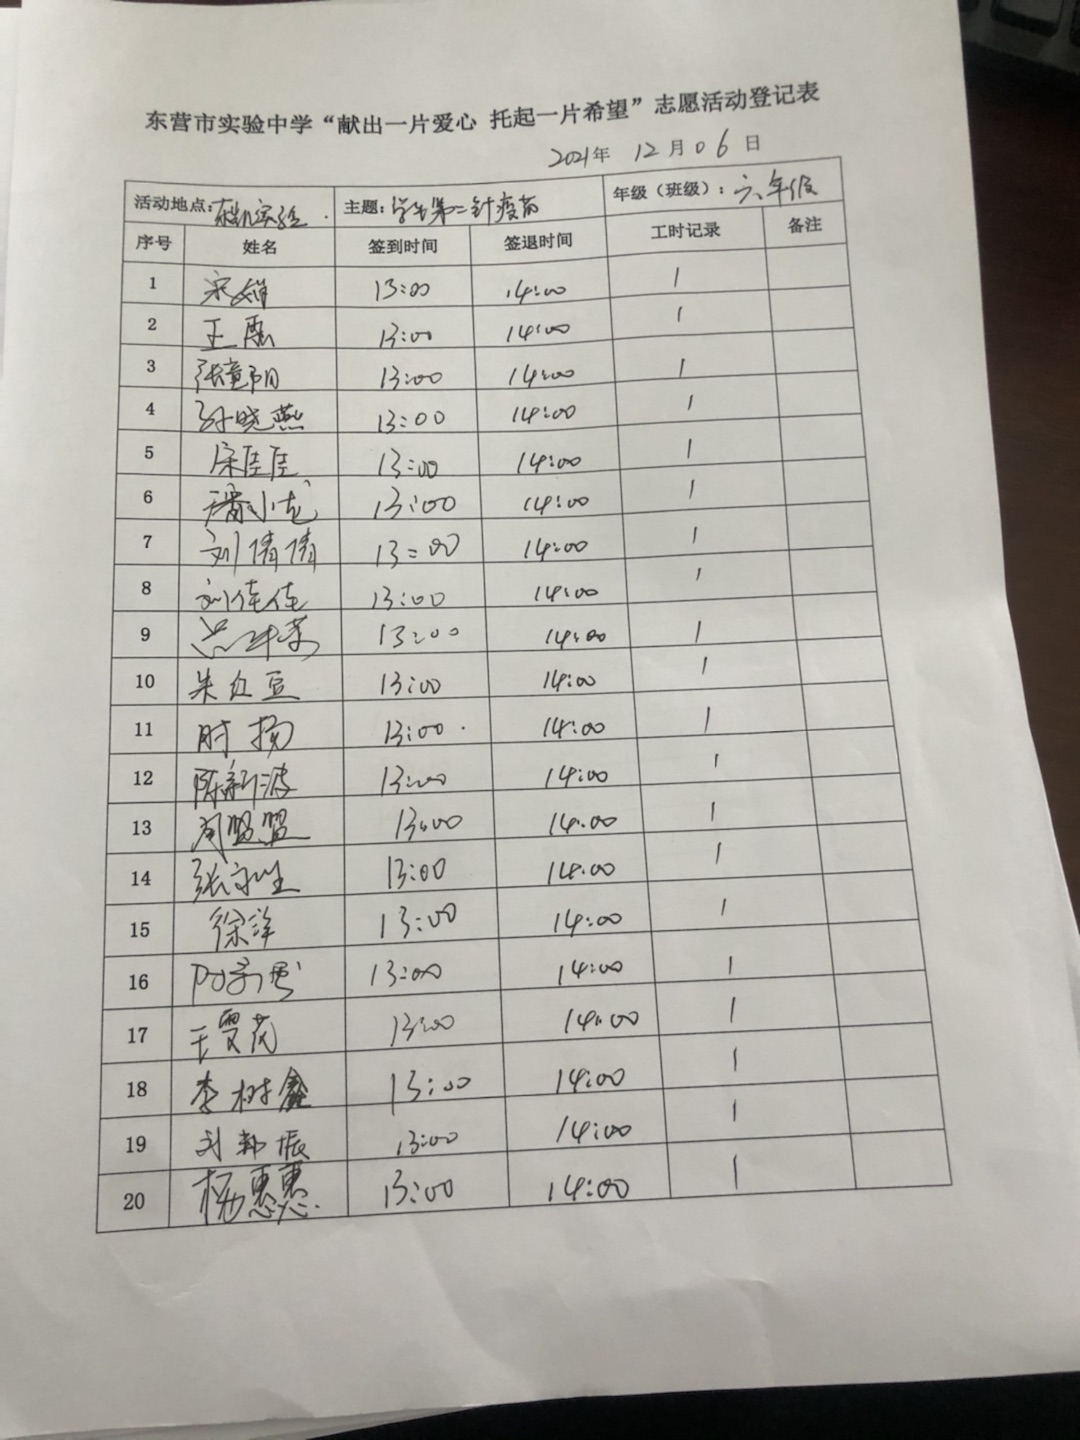 东营市实验中学“献出一片爱心 托起一片希望”志愿活动登记表
2021年 12月06日
活动地点: 实验 主题: 学生第二针疫苗 年级（班级）: 六年级
序号 姓名 签到时间 签退时间 工时记录 备注
1 宋 13:00 14:00 1
2 王磊 13:00 14:00 1
3 张童阳 13:00 14:00 1
4 孙晓燕 13:00 14:00 1
5 宋臣臣 13:00 14:00 1
6 潘小龙 13:00 14:00 1
7 刘倩倩 13:00 14:00 1
8 刘佳佳 13:00 14:00 1
9 13:00 14:00 1
10 朱红豆 13:00 14:00 1
11 时扬 13:00 14:00 1
12 陈新波 13:00 14:00 1
13 周盟盟 13:00 14:00 1
14 张永生 13:00 14:00 1
15 徐洋 13:00 14:00 1
16 13:00 14:00 1
17 王贾茂 13:00 14:00 1
18 李树鑫 13:00 14:00 1
19 刘振 13:00 14:00 1
20 杨惠惠 13:00 14:00 1